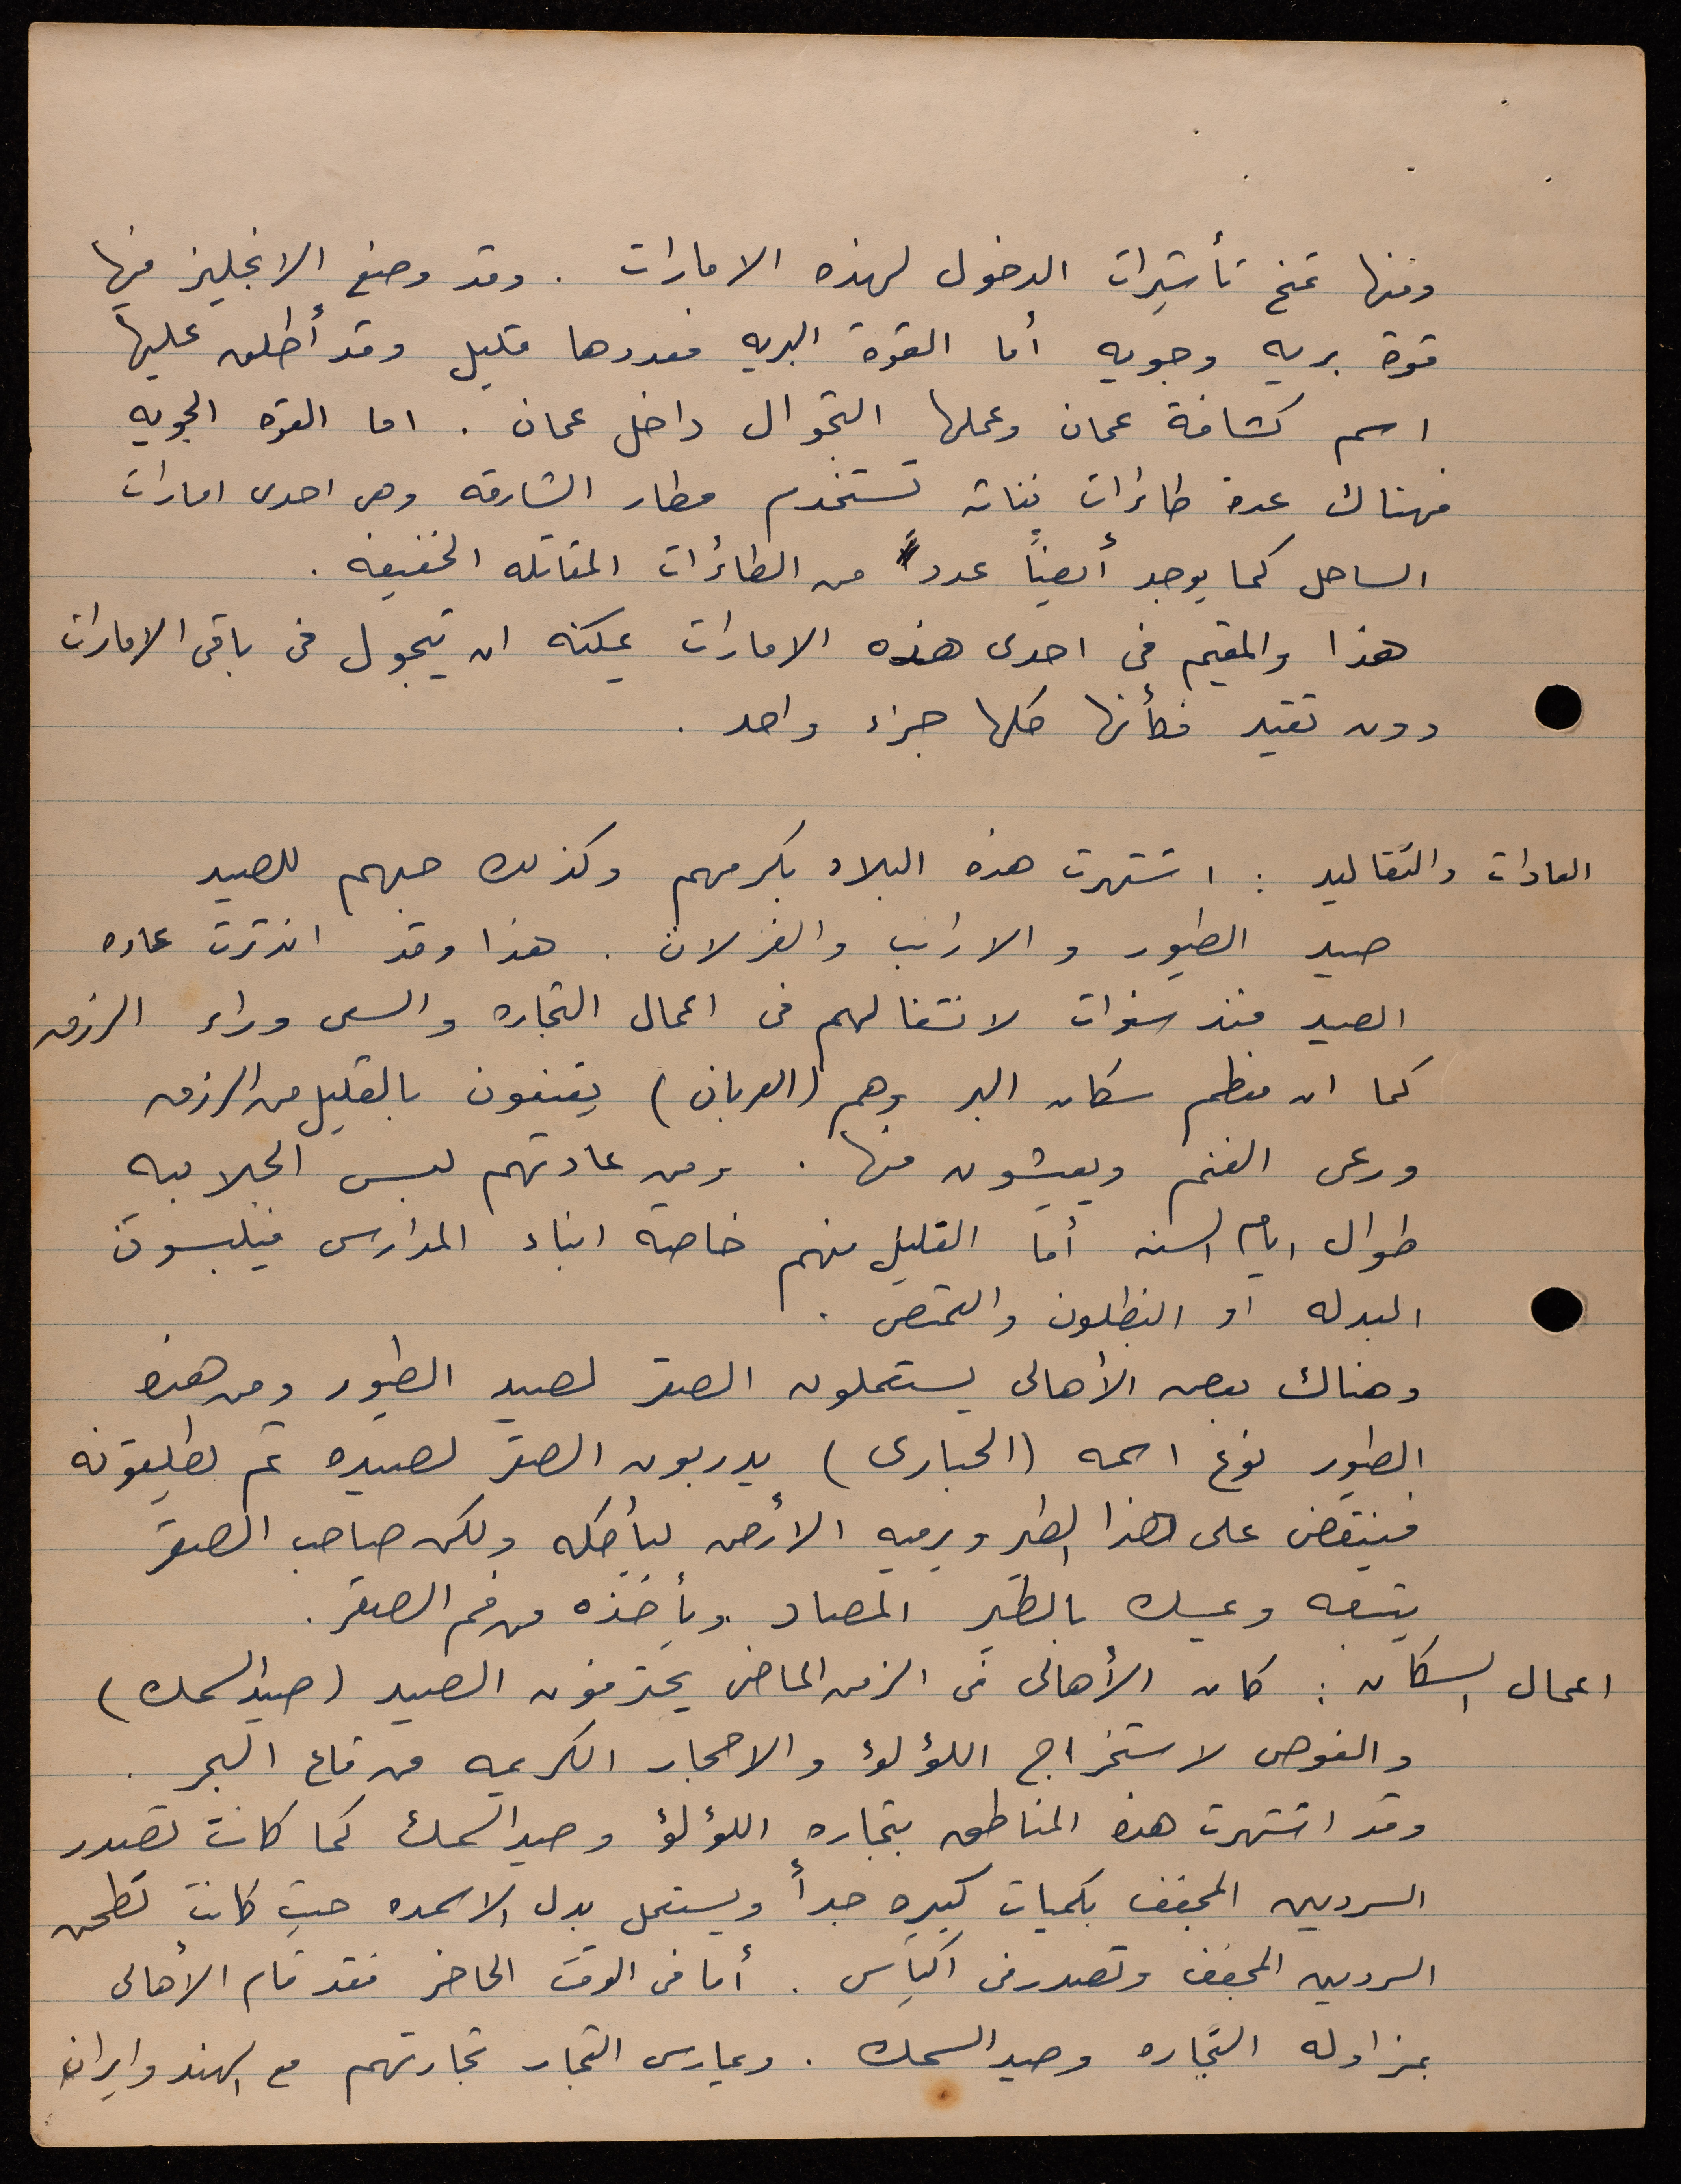 ومنها تمنح تأشيرات الدخول لهذه الامارات . وقد وضع الانجليز فيها
قوة بريه وجويه أما القوة البريه فعددها قليل وقد أطلق عليها
اسم كشافة عمان وعملها التجوال داخل عمان . اما القوه الجويه
فهناك عدة طائرات نفاثه تستخدم مطار الشارقه وهى احدى امارات
الساحل كما يوجد أيضاً عدد من الطائرات المقاتله الخفيفه .
هذا والمقيم فى احدى هذه الامارات يمكنه ان يتجول فى باقى الامارات
دون تقيد فكأنها كلها جزء واحد .
العادات والتقاليد : اشتهرت هذه البلاد بكرمهم وكذلك حبهم للصيد
صيد الطيور و الارانب والغزلان . هذا وقد اندثرت عاده
الصيد منذ سنوات لانشغالهم فى اعمال التجاره والسعى وراء الرزق
كما ان معظم سكان البر وهم (العربان) يقنعون بالقليل من الرزق
ورعى الغنم ويعيشون منها . ومن عادتهم لبس الجلابيه
طوال ايام السنه أما القليل منهم خاصة ابناء المدارس فيلبسون
البدله او البنطلون والقميص .
وهناك بعض الأهالى يستعملون الصقر لصيد الطيور ومن هذه
الطيور نوع اسمه (الحبارى) يدربون الصقر لصيده ثم يطلقونه
فينقض على هذا الطير ويرميه الأرض ليأكله ولكن صاحب الصقر
يتبعه ويمسك بالطير المصاد ويأخذه من فم الصقر .
اعمال السكان : كان الأهالى فى الزمن الماضى يحترفون الصيد (صيد السمك)
والغوص لاستخراج اللؤلؤ والاحجار الكريمه من قاع البحر .
وقد اشتهرت هذه المناطق بتجاره اللؤلؤ وصيد السمك كما كانت تصدر
السردين المجفف بكميات كبيره جداً ويستعمل بدل الاسمده حيث كانت تطحن
السردين المجفف وتصدر فى اكياس . أما فى الوقت الحاضر فقد قام الأهالى
بمزاوله التجاره وصيد السمك . ويمارس التجار تجارتهم مع الهند وايران